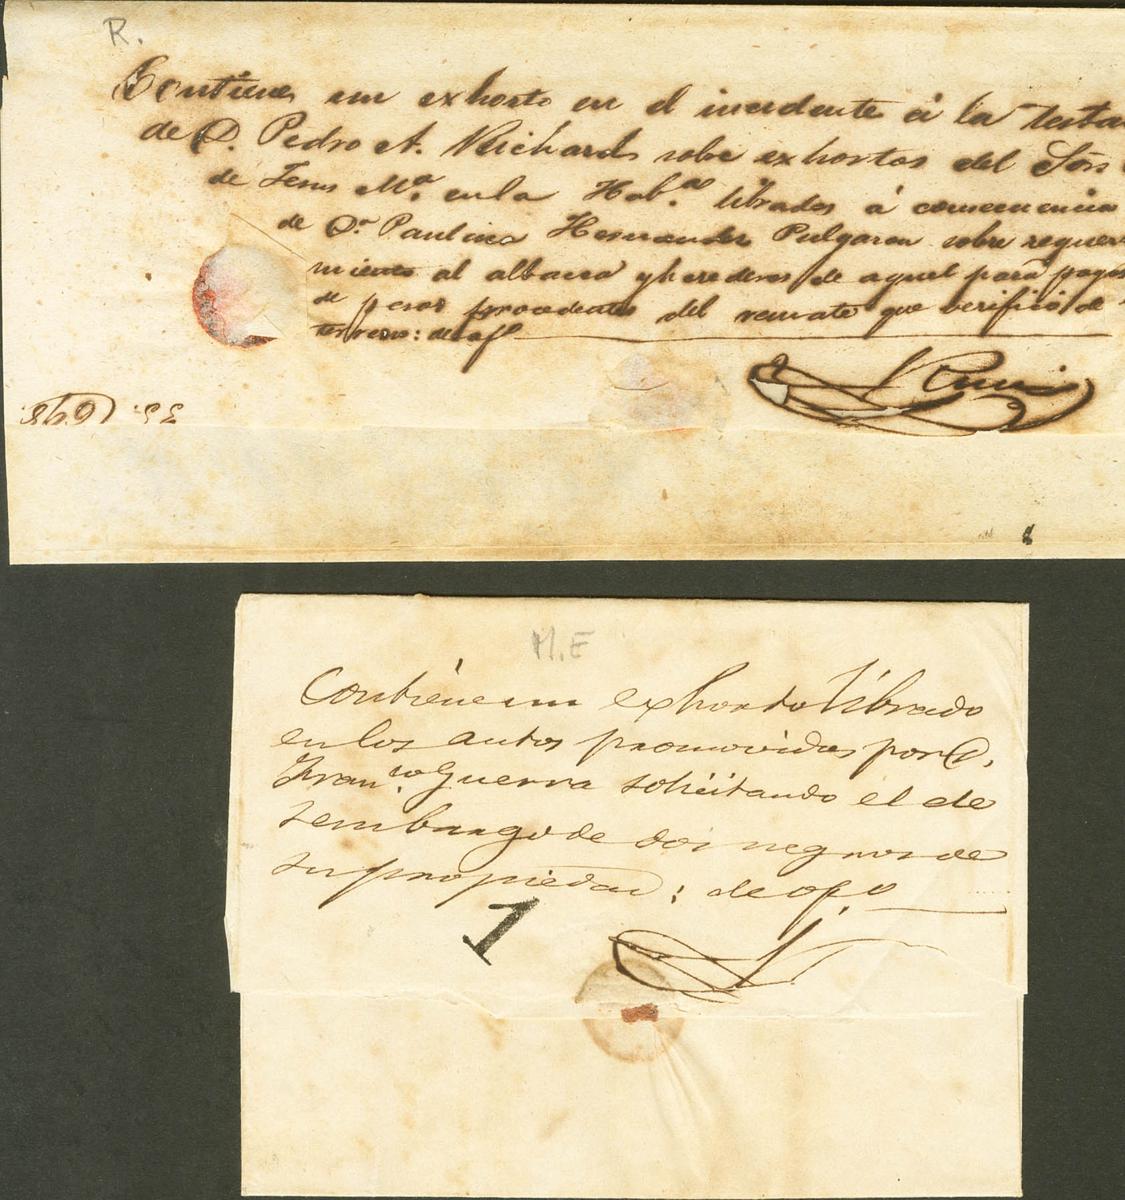 R.
Contiene un exhorto en el incidente á la testa
de D. Pedro A. Richards sobe exhortos del Sõr
de Jesus Mª. en la Habª. librados á consecuencia
de Dª Paulina Hernandez Pulgaron sobre requer
miento al albacea y herederos de aquel para pagos
de pesos procedentes del remate que verificó de
terreno: de of
M.E
Contiene un exhorto librado
en los autos promovidos por D.
Franco. Guerra solicitando el de
sembargo de dos negros de
su propiedad; de ofo
1